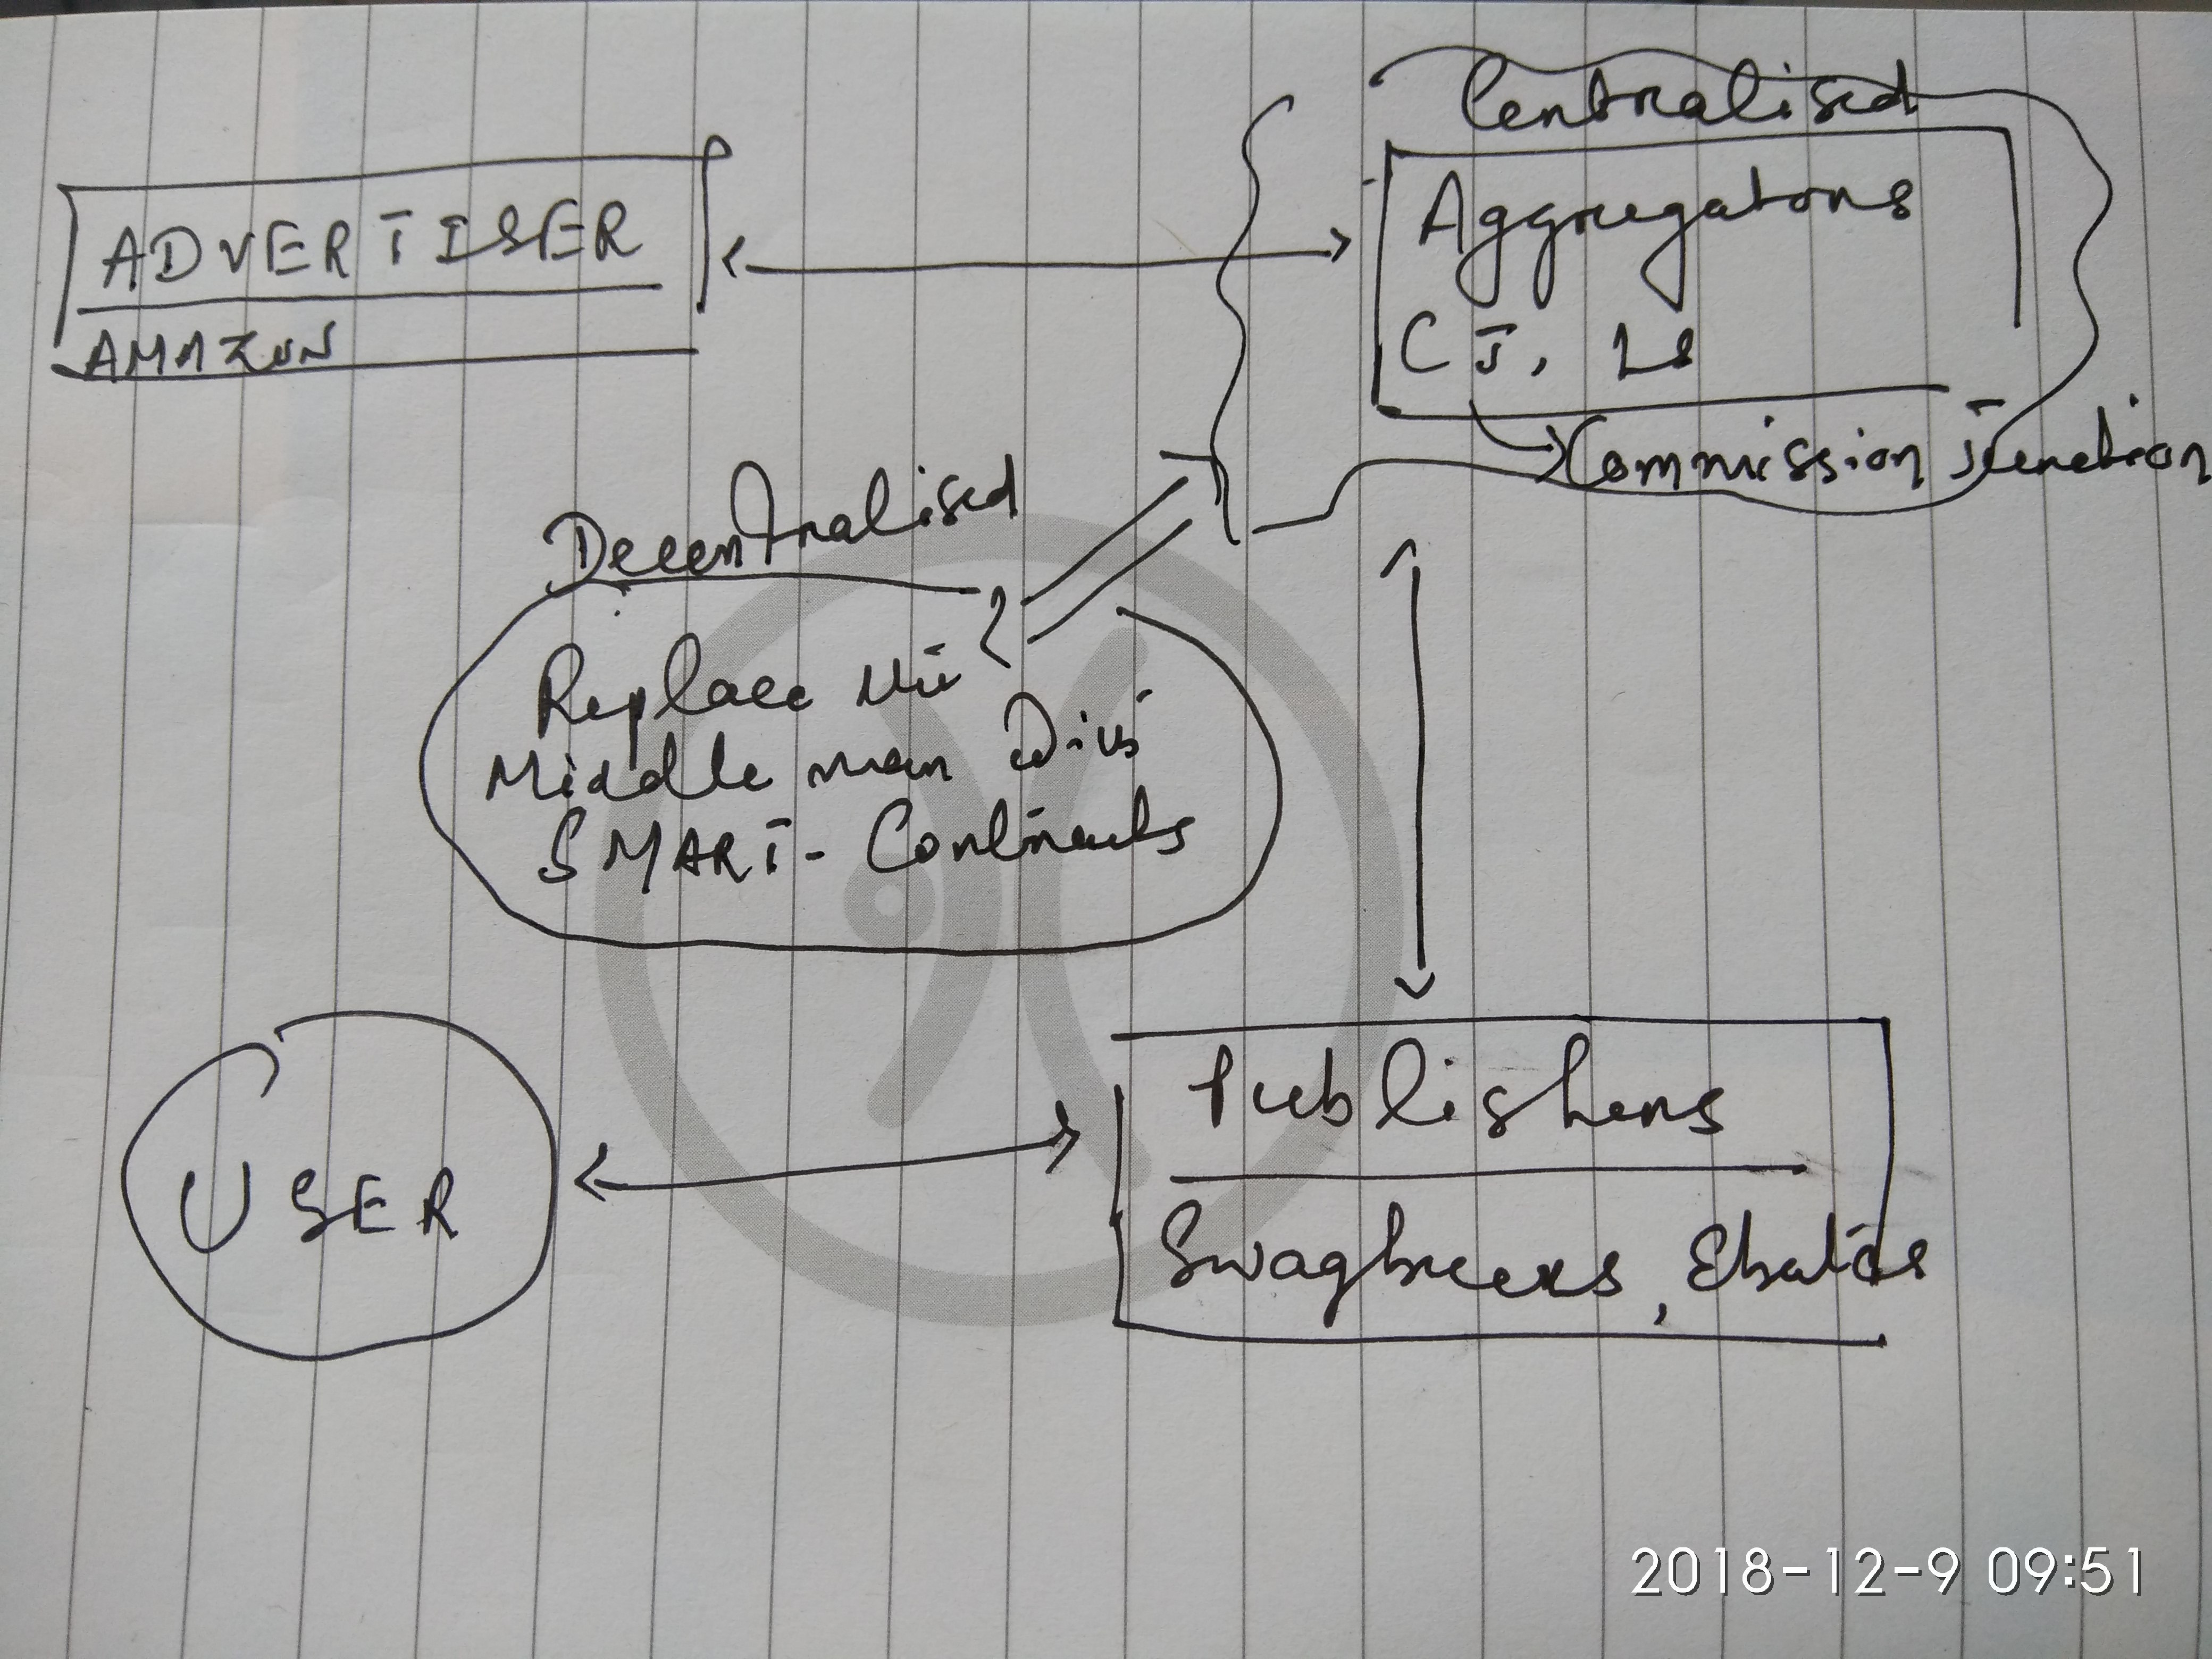 Centralised
ADVERTISER
AMAZON
Aggregators
CJ, LS
Commission Junction
Decentralised
Replace the
Middle man with
SMART-Contracts
USER
Publishers
Swagbucks, Ebates
2018-12-9 09:51